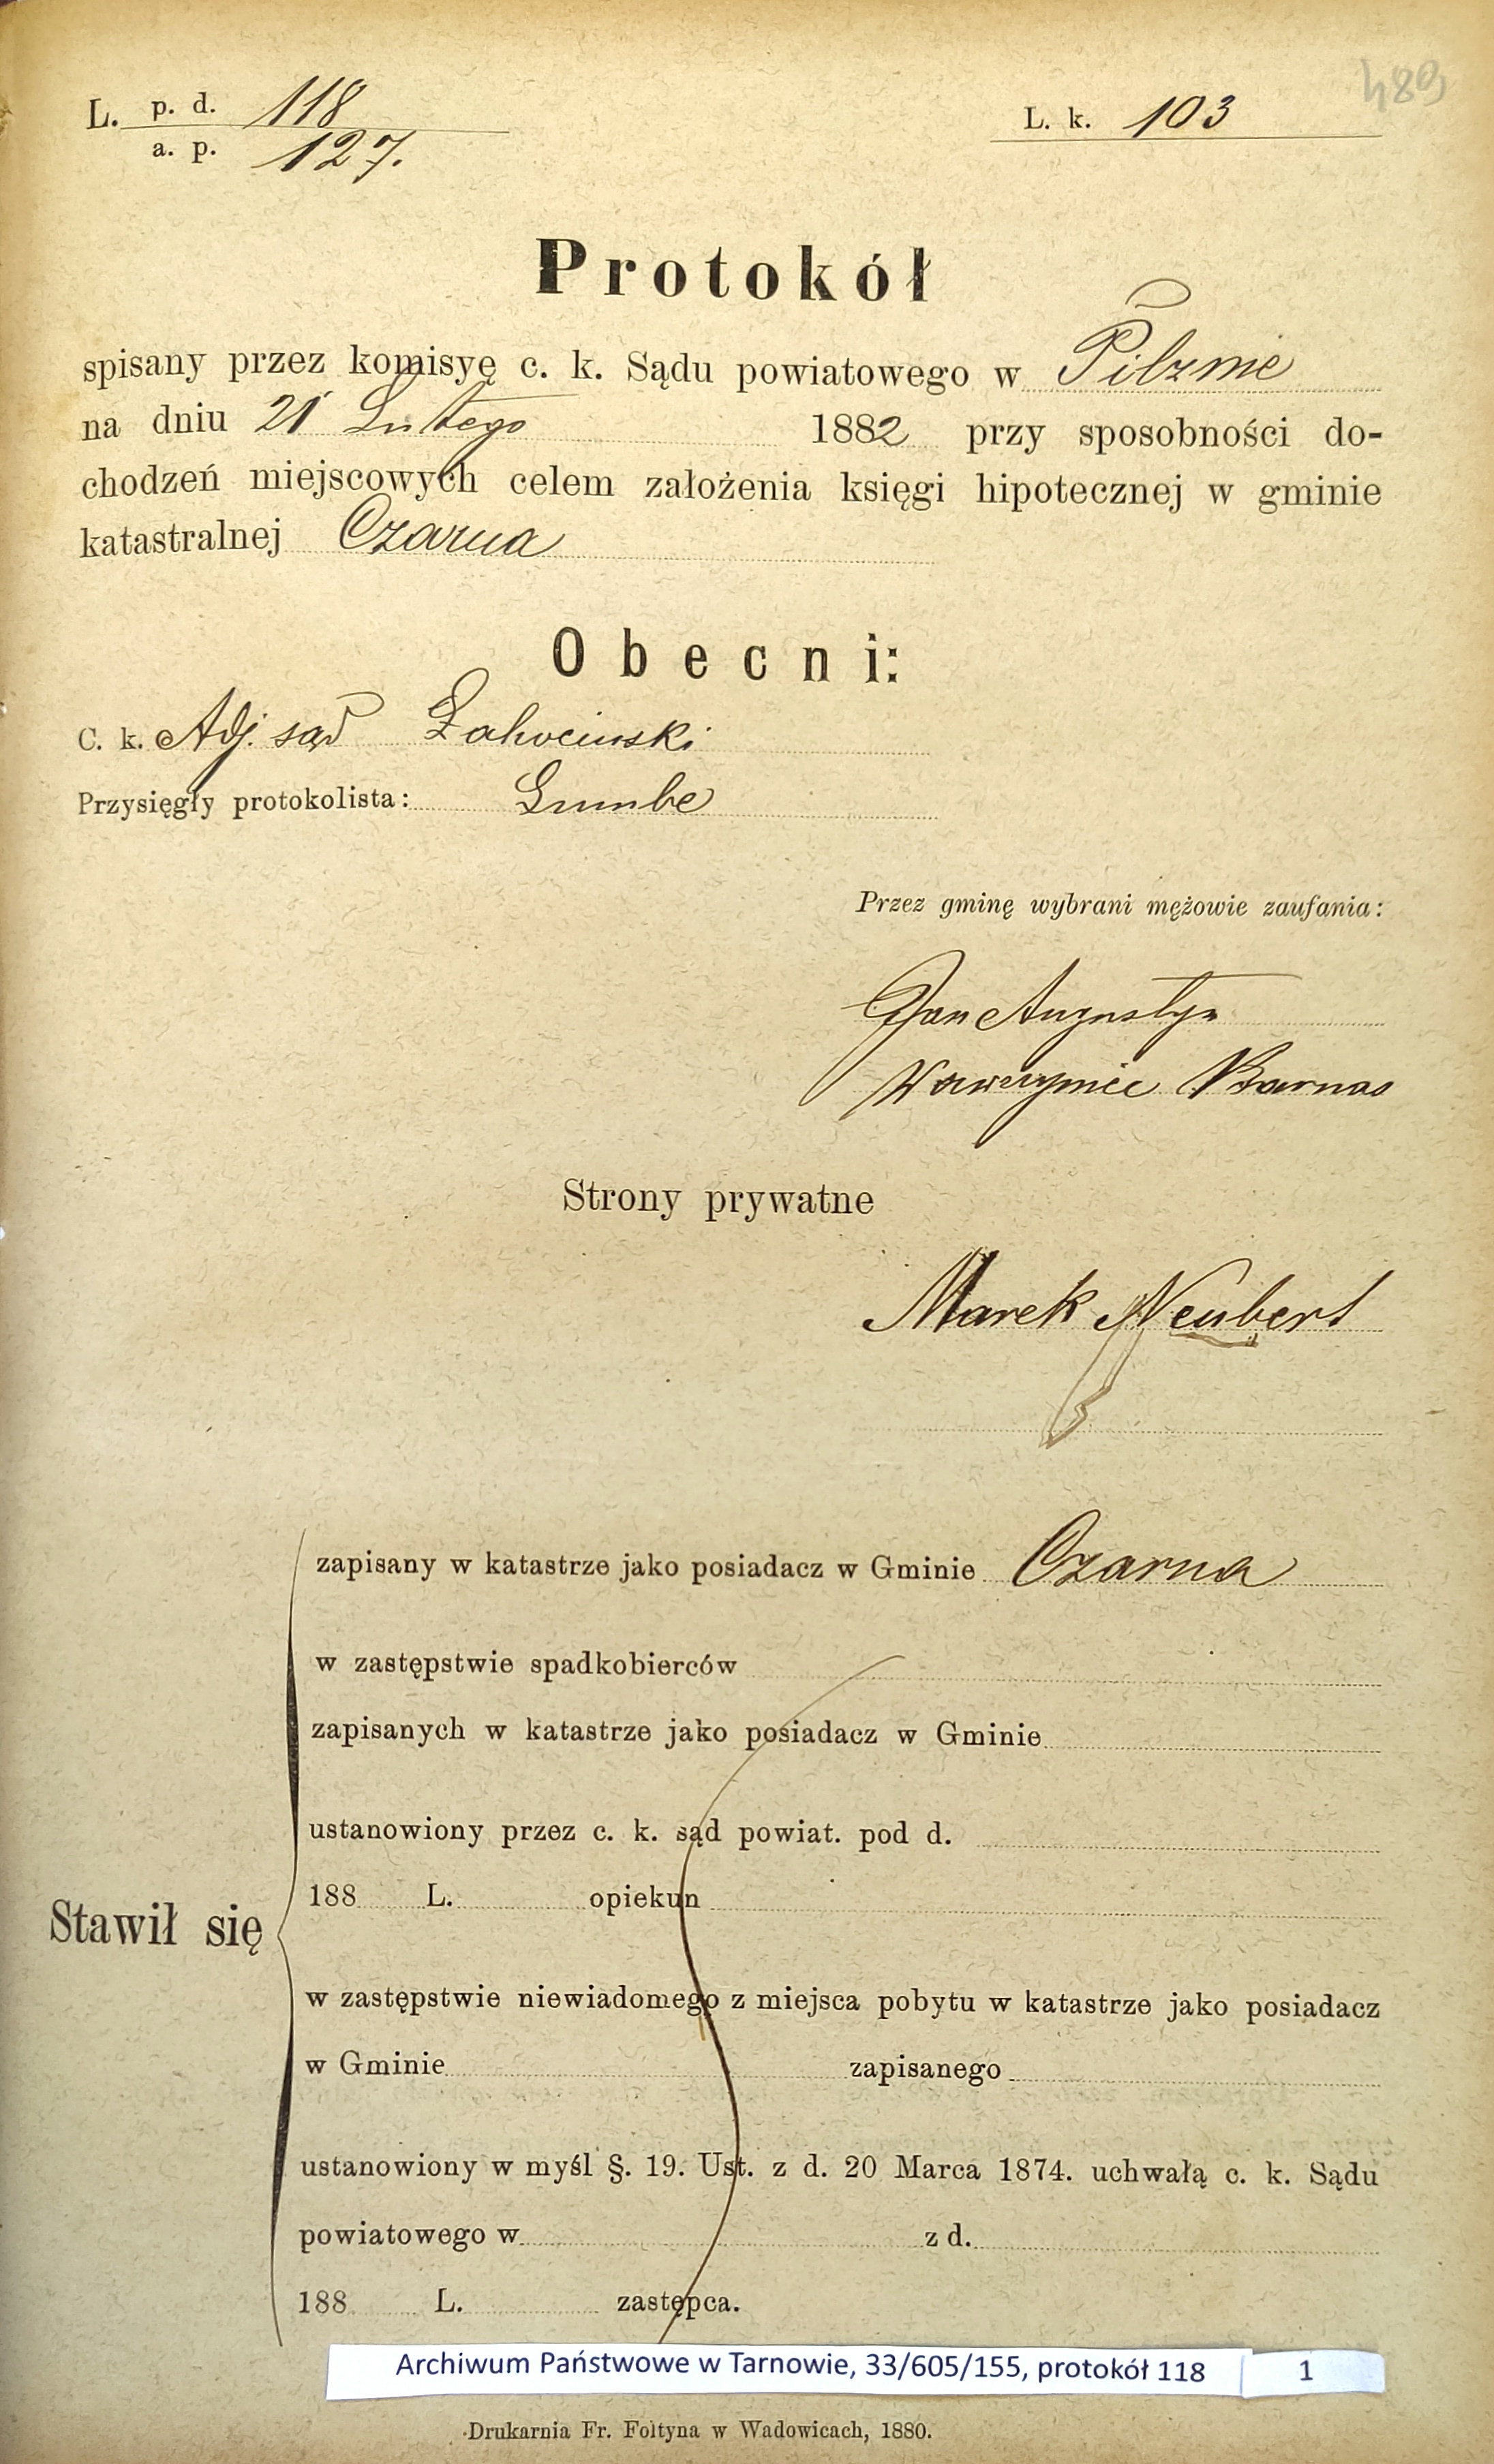 489
L. p. d. 118
a. p. 127.
L. k. 103
Protokół
spisany przez komisyę c. k. Sądu powiatowego w Pilznie
na dniu 21 Lutego 1882 przy sposobności do-
chodzeń miejscowych celem założenia księgi hipotecznej w gminie
katastralnej Czarna
Obecni:
C. k. Adj. sąd
Przysięgły protokolista:
Przez gminę wybrani mężowie zaufania:
Jan Augustyn
Wawrzyniec Barnas
Strony prywatne
Marek Neubert
zapisany w katastrze jako posiadacz w Gminie Czarna
w zastępstwie spadkobierców
zapisanych w katastrze jako posiadacz w Gminie
ustanowiony przez c. k. sąd powiat. pod d.
188 L. opiekun
Stawił się
w zastępstwie niewiadomego z miejsca pobytu w katastrze jako posiadacz
w Gminie zapisanego
ustanowiony w myśl §. 19. Ust. z d. 20 Marca 1874. uchwałą c. k. Sądu
powiatowego w z d.
188 L. zastępca.
Archiwum Państwowe w Tarnowie, 33/605/155, protokół 118 1
Drukarnia Fr. Foltyna w Wadowicach, 1880.